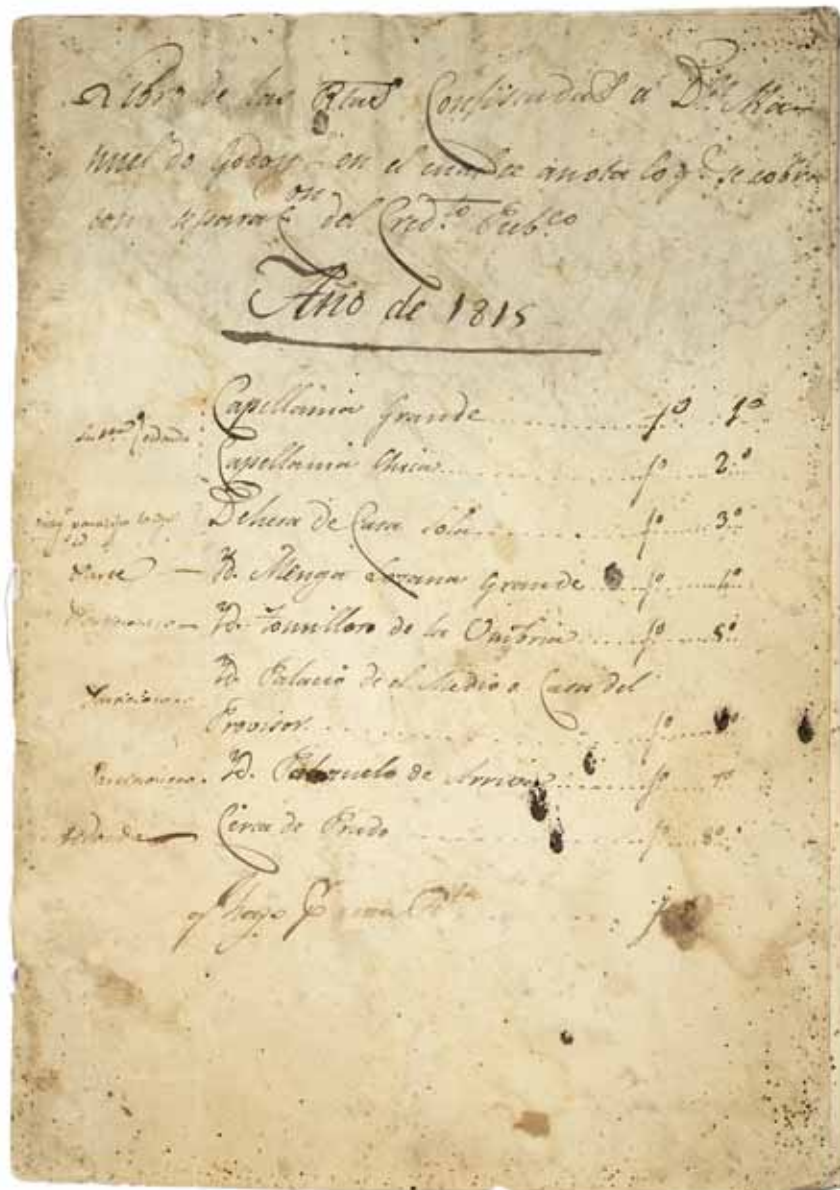 Libro de las Rtas Confiscadas a Dn. Ma-
nuel de Godoy en el cual se anota lo q.e se cobra
con separac.on del Cred.to Pub.co
Año de 1815
Capellania Grande ........ fo 1o
Capellania Chica ........ fo 2o
Dehesa de Casa Sola ........ fo 3o
Parte — Yd. Menga Lozana Grande fo 4o
Yd. Tomilloso de la Umbria ........ fo 5o
Yd. Palacio de el Medio o Casa del
Provisor ........ fo
Yd. Palazuelo de Arriva ........ fo 7o
Cerca de Prado ........ fo 8o